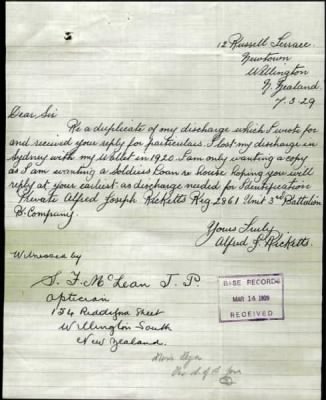 12 Russell Terrace
Newtown
Wellington
N Zealand.
7.3.29
Dear Sir
Re a duplicate of my discharge which I wrote for
and recived your reply for particulars. I lost my discharge in
Sydney with my Wallet in 1920. I am only wanting a copy
as I am wanting a Soldiers Loan re house hoping you will
reply at your earliest. as discharge needed for Identification
Private Alfred Joseph Ricketts Reg 2961 Unit 3rd Battalion
B. Company.
Yours Truly
Alfred J. Ricketts.
Witnessed by
S. F. McLean J. P.
Optician
154 Riddiford Street
Wellington South
New Zealand.
BASE RECORDS
MAR 16 1929
RECEIVED